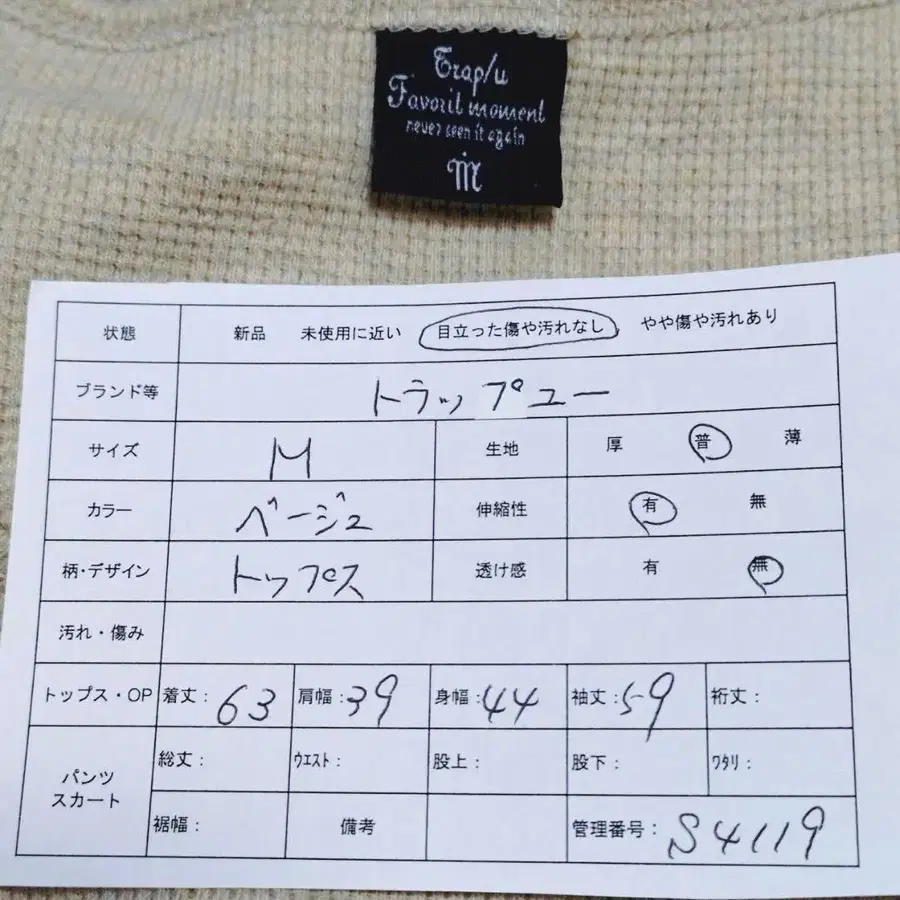 Trap/u
Favorit moment
never seen it again
m
状態 新品 未使用に近い 目立った傷や汚れなし やや傷や汚れあり
ブランド等 トラップユー
サイズ M 生地 厚 普 薄
カラー ベージュ 伸縮性 有 無
柄・デザイン トップス 透け感 有 無
汚れ・傷み
トップス・OP 着丈: 63 肩幅: 39 身幅: 44 袖丈: 59 裄丈:
パンツ
スカート
総丈: ウエスト: 股上: 股下: ワタリ:
裾幅: 備考 管理番号: S4119